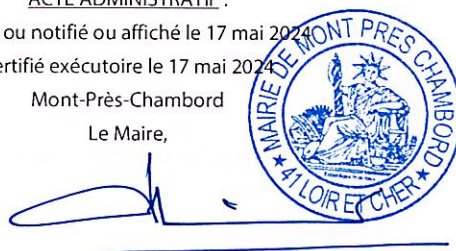 ACTE ADMINISTRATIF :
ou notifié ou affiché le 17 mai 2024
ertifié exécutoire le 17 mai 2024
Mont-Près-Chambord
Le Maire,
MAIRIE DE MONT PRES CHAMBORD
★ 41 LOIR ET CHER ★